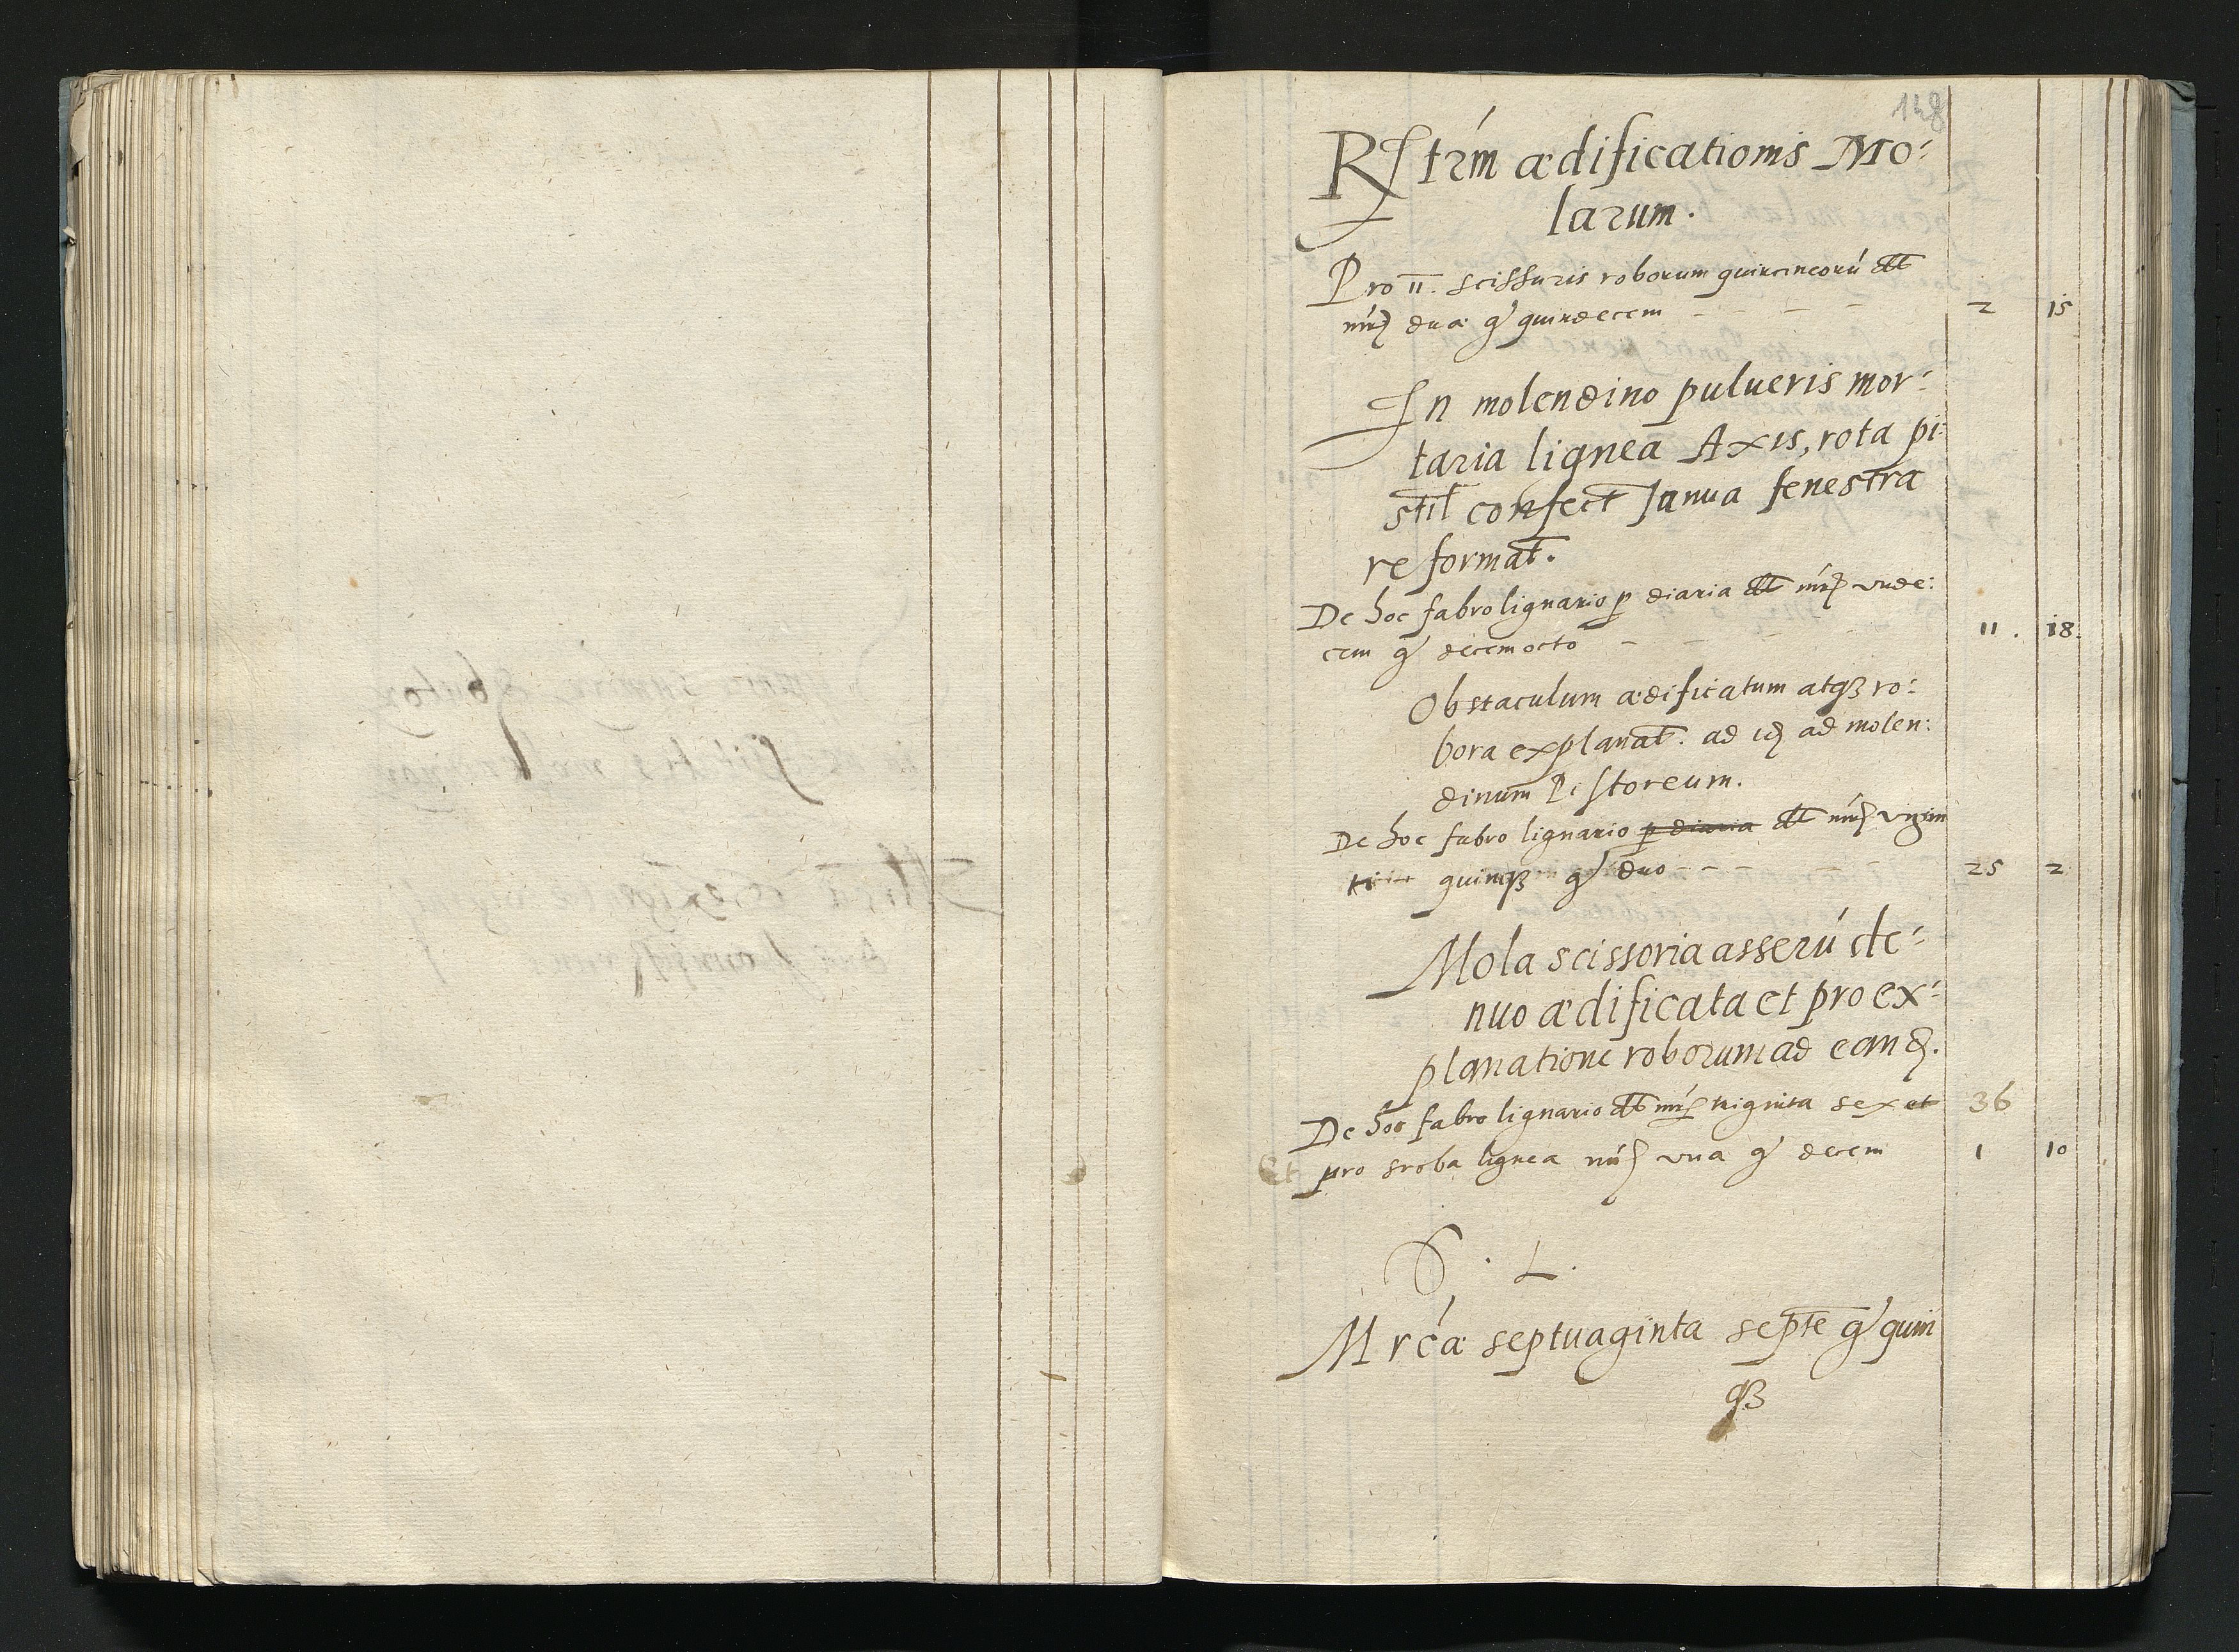 148
Rstrm ædificationis Mo:
larum.
Pro 11. scissuris roborum quircineorú dt
mrc duæ g quindecem - - - 2 15
In molendino pulueris mor:
taria lignea Axis, rota pi:
stil confect Janua fenestra
reformat.
De hoc fabro lignario p diaria dt mrc vnde:
cem g decemocto - - - 11. 18.
Obstaculum ædificatum atqз ro:
bora explanat. ad id ad molen:
dinum Pistoreum.
De hoc fabro lignario p diaria dt mrc vigin
ti quinqз g duo - - - 25 2
Mola scissoria asserú de:
nuo ædificata et pro ex:
planatione roborum ad eand.
De hoc fabro lignario dt mrc triginta sex et 36
Et pro sroba lignea mrc vna g decem 1 10
S. L.
Mrcæ septuaginta septe g quin
qз